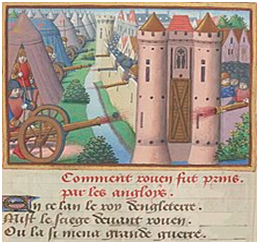 Comment rouen fut prins
par les angloys.
En ce lan le roy dengleterre.
Mist le siege devant rouen.
Ou la se mena grande guerre.